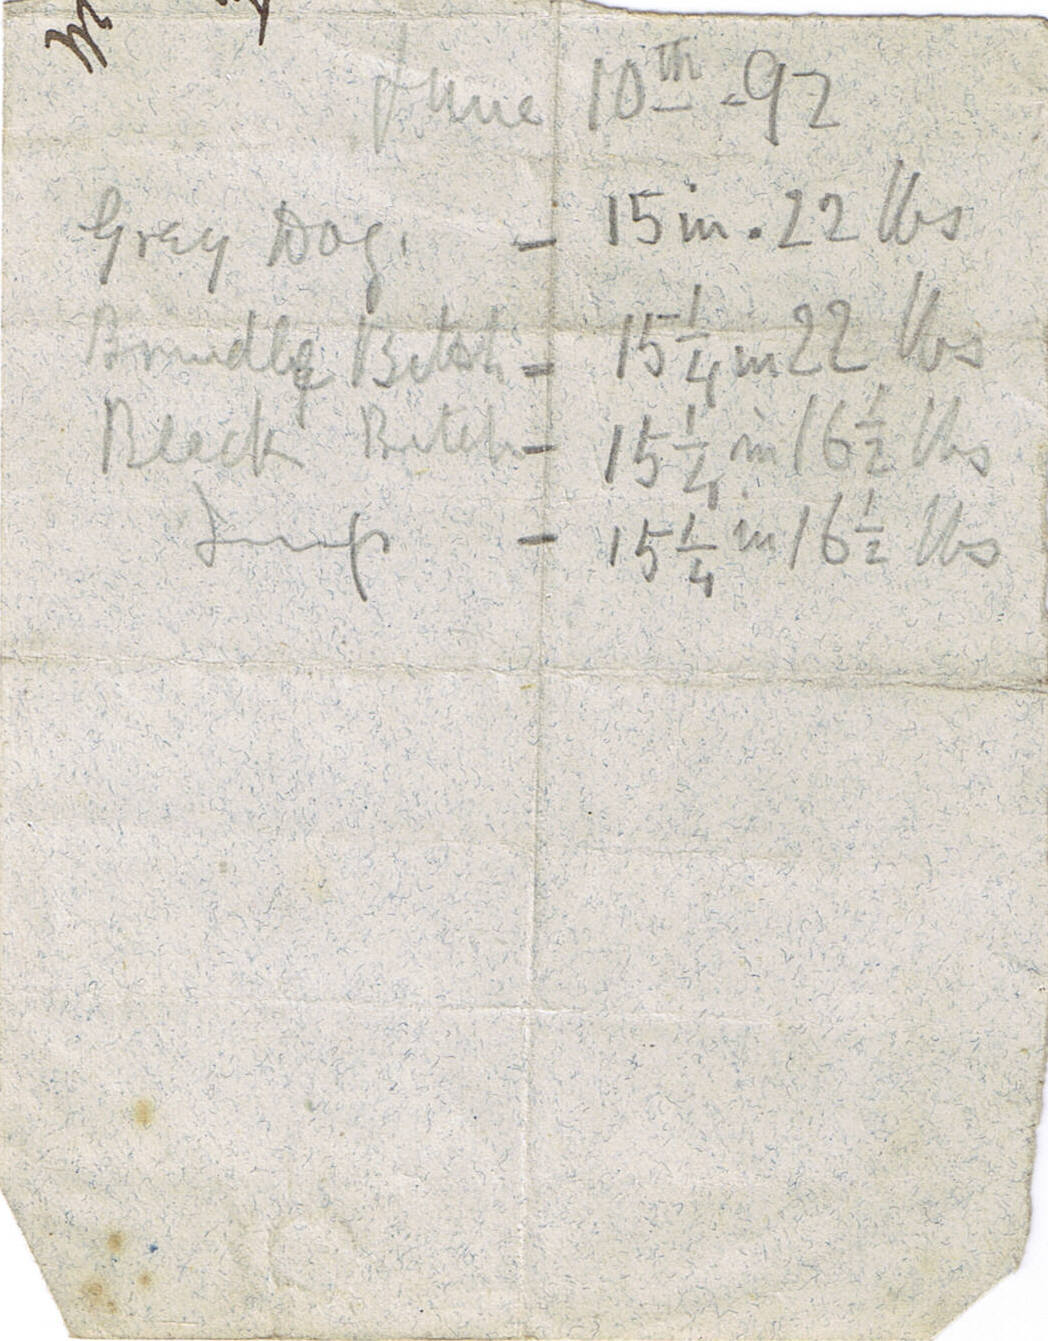 June 10th - 92
Grey Dog. - 15 in. 22 lbs
Brindle Bitch - 15 1/4 in 22 lbs
Black Bitch - 15 1/4 in 16 1/2 lbs
- 15 1/4 in 16 1/2 lbs